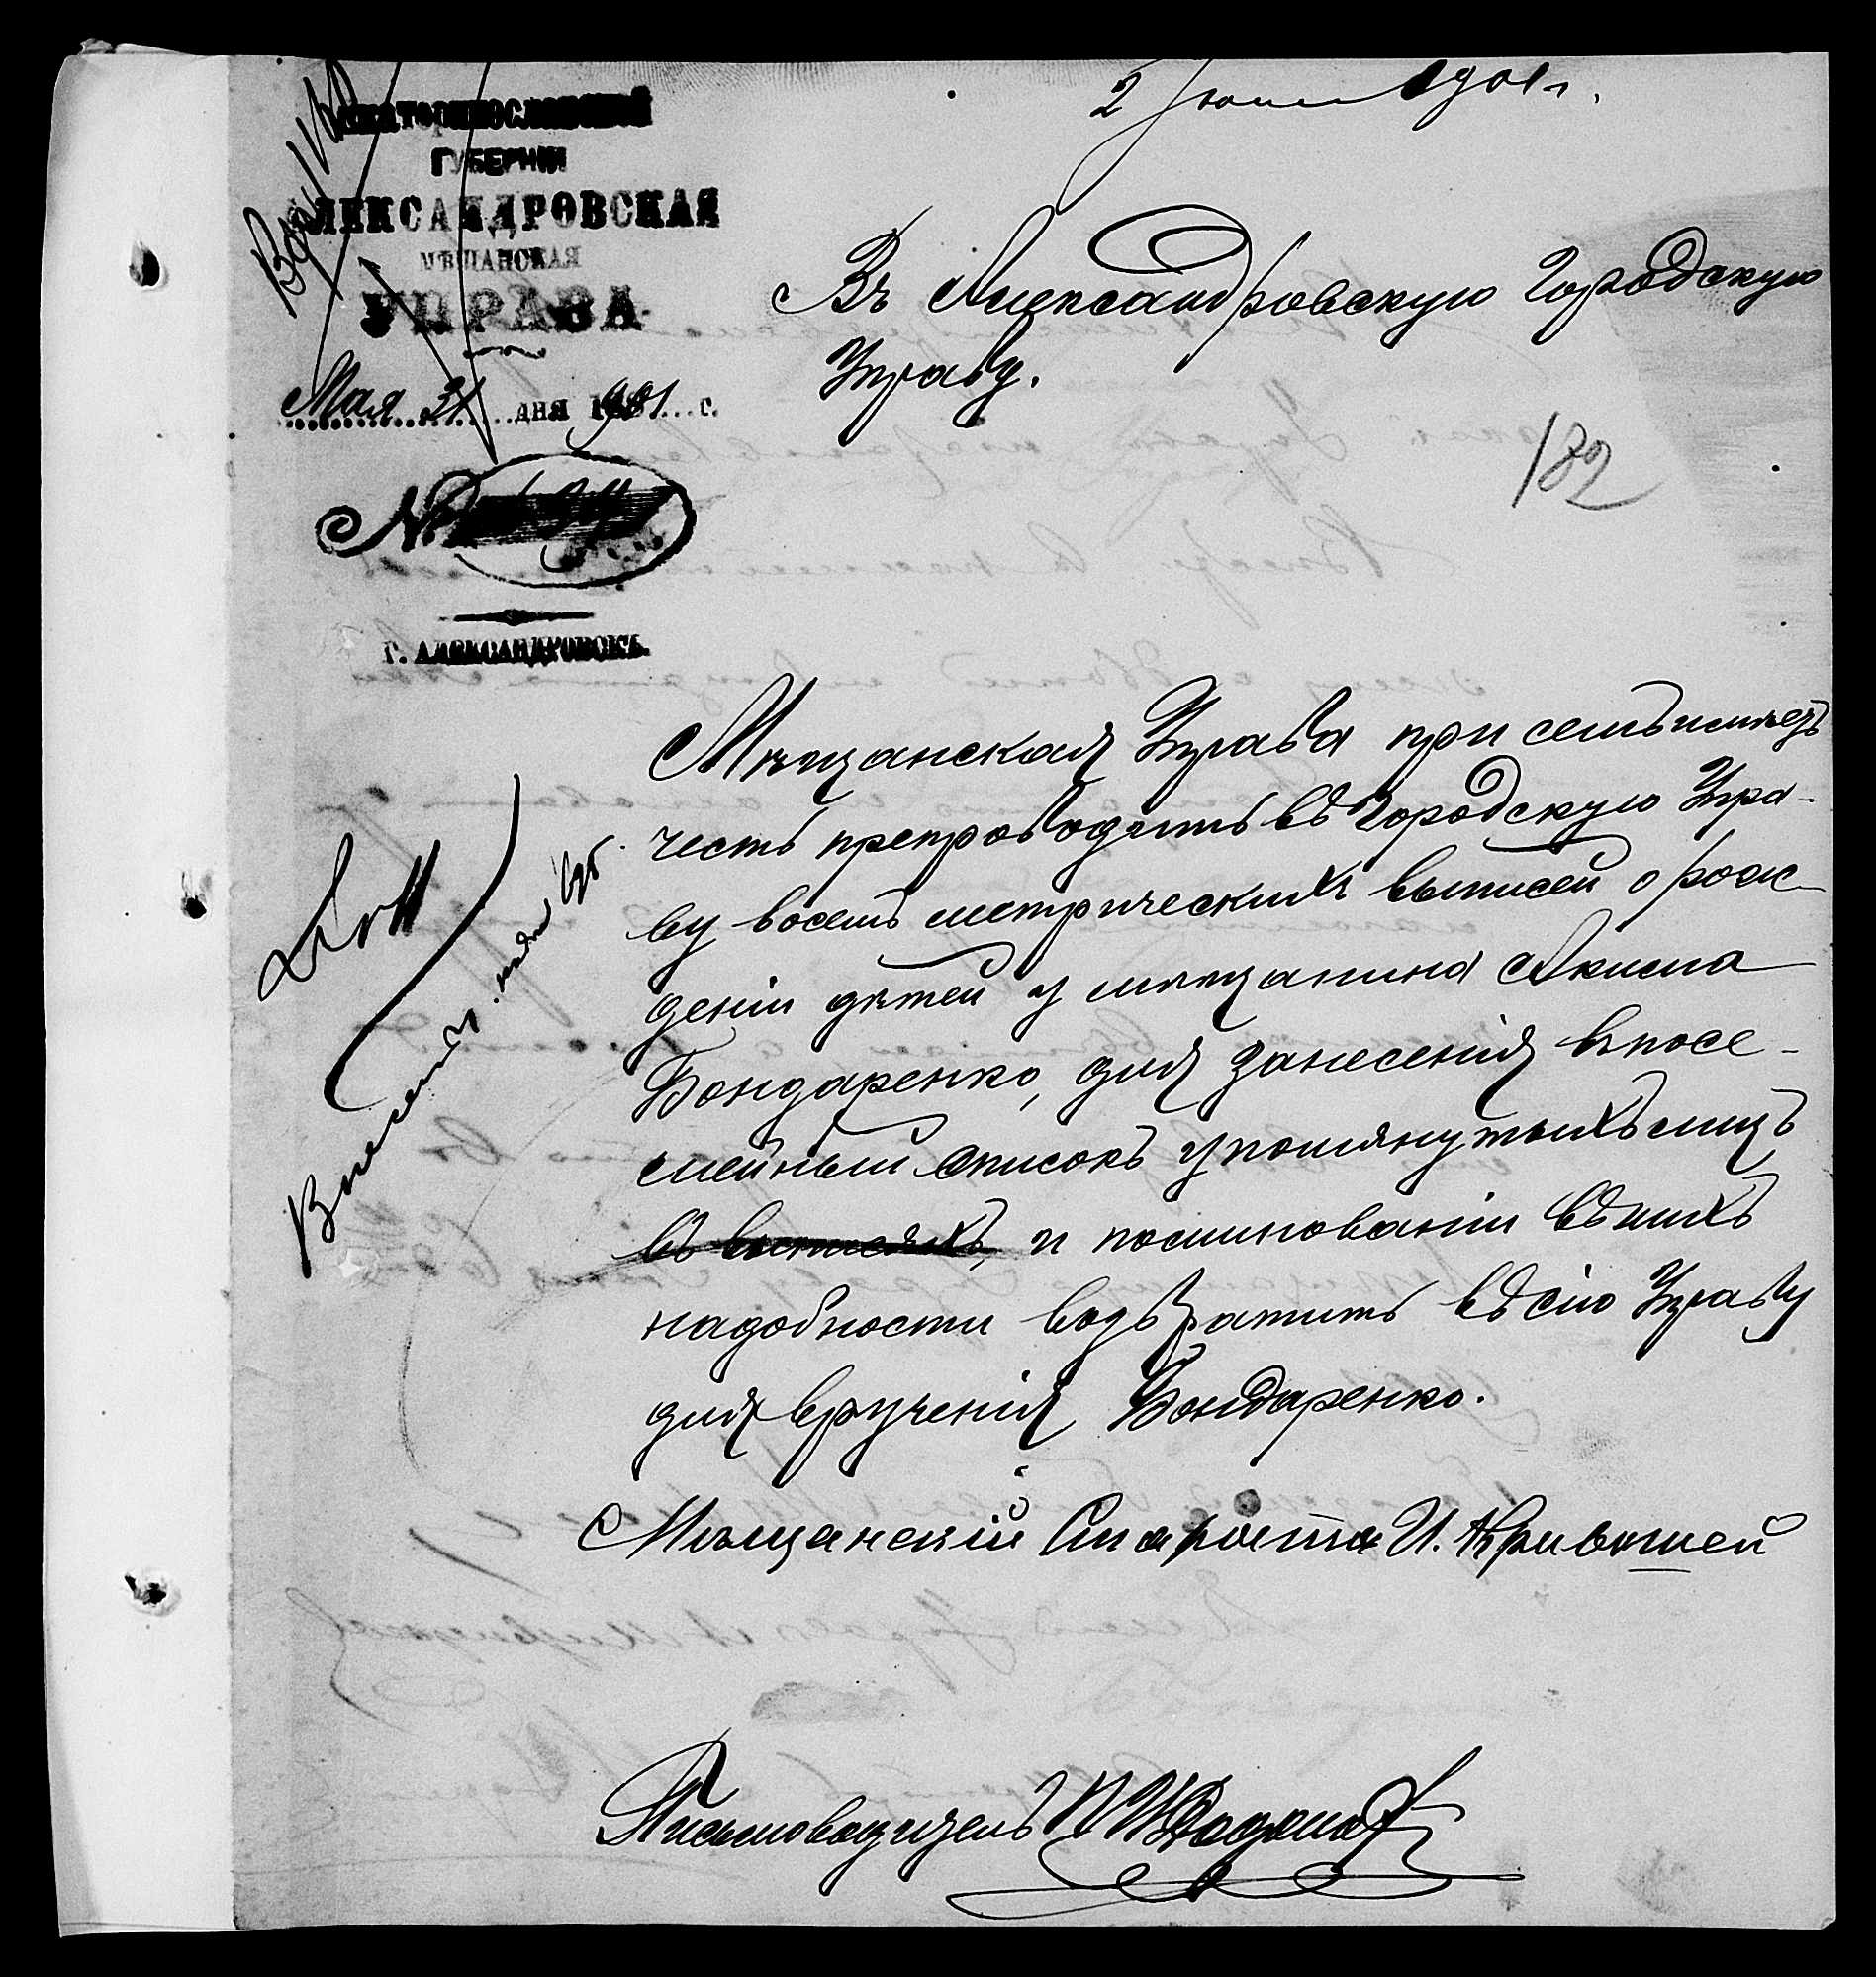 2 Іюня 1901 г.
ЕКАТЕРИНОСЛАВСКОЙ
ГУБЕРНИИ
АЛЕКСАНДРОВСКАЯ
МѢЩАНСКАЯ
УПРАВА
Мая 31 дня 1901 г.
№
Г. АЛЕКСАНДРОВСКЪ.
Въ Александровскую Городскую
Управу.
182
Мѣщанская Управа при семъ имѣетъ
честь препроводить въ Городскую Упра-
ву восемь метрическихъ выписей о рож-
деніи дѣтей у мѣщанина Акима
Бондаренко, для занесенія въ посе-
мейный списокъ упомянутыхъ лицъ
въ выписяхъ, и по минованіи въ нихъ
надобности возвратить въ сію Управу
для врученія Бондаренко.
Мѣщанскій Староста И. Кривошей
Письмоводитель